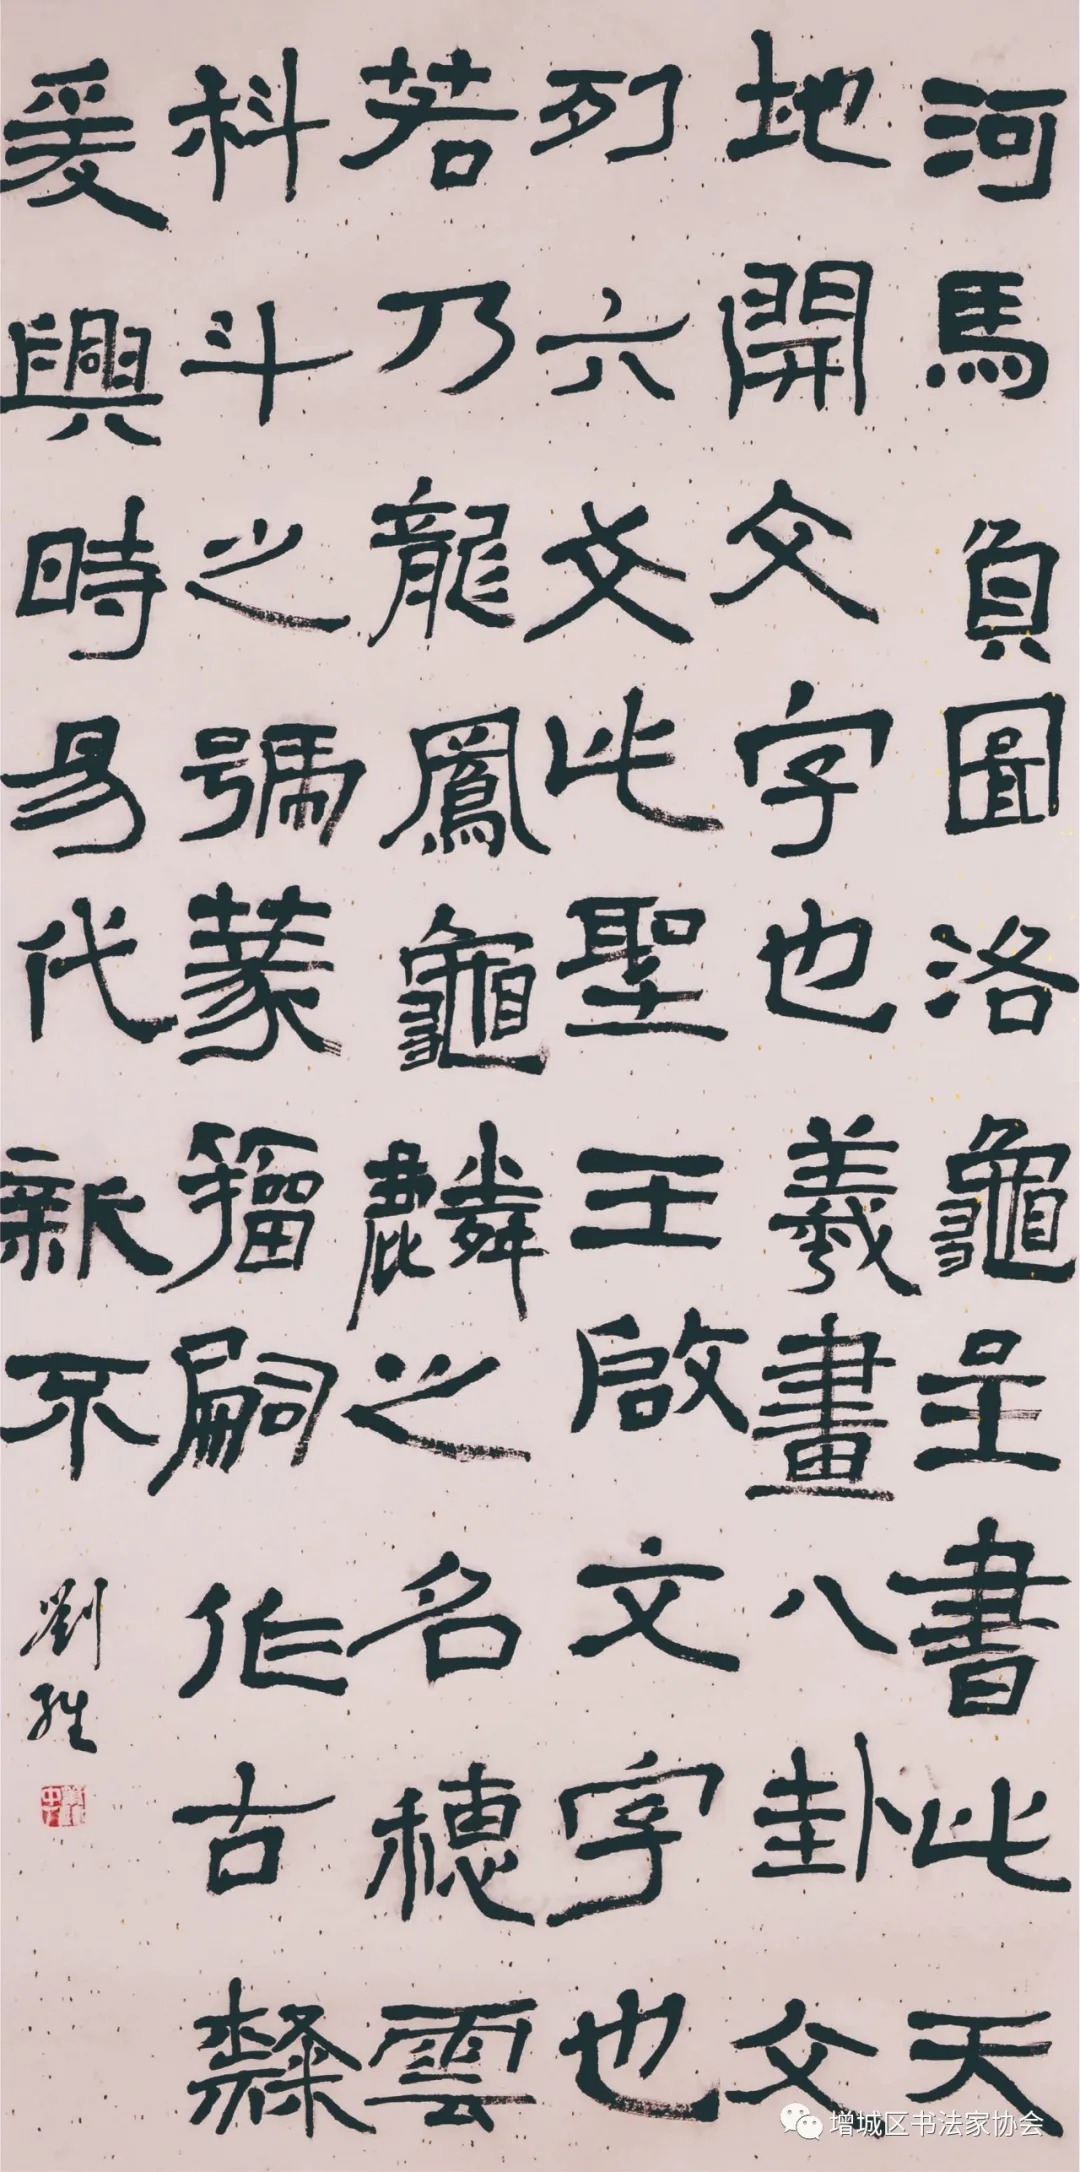 河馬負圖洛龜呈書此天
地開文字也羲畫八卦文
列六爻此聖王啟文字也
若乃龍鳳龜麟之名穗雲
科斗之號篆籀嗣作古隸
爰興時易代新不
劉
增城区书法家协会